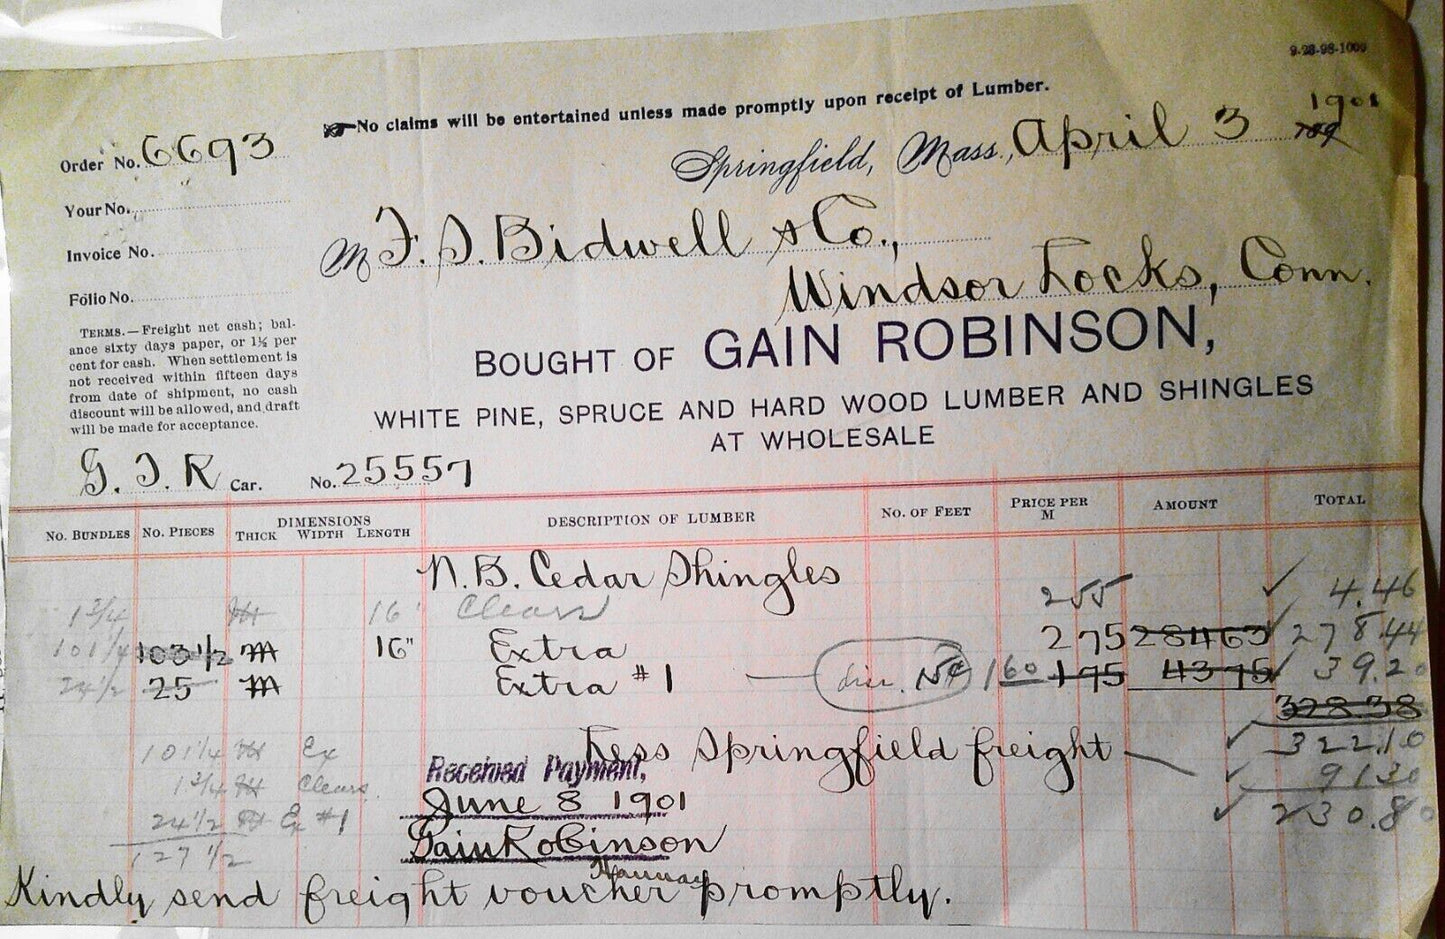 9-28-98-1000
No claims will be entertained unless made promptly upon receipt of Lumber.
Order No. 6693
Springfield, Mass., April 3 1901
Your No.
M F. S. Bidwell & Co.,
Invoice No.
Windsor Locks, Conn.
Folio No.
TERMS.—Freight net cash; bal-
ance sixty days paper, or 1½ per
cent for cash. When settlement is
not received within fifteen days
from date of shipment, no cash
discount will be allowed, and draft
will be made for acceptance.
BOUGHT OF GAIN ROBINSON,
WHITE PINE, SPRUCE AND HARD WOOD LUMBER AND SHINGLES
AT WHOLESALE
G. T. R Car. No. 25557
No. BUNDLES No. PIECES DIMENSIONS THICK WIDTH LENGTH DESCRIPTION OF LUMBER No. OF FEET PRICE PER M AMOUNT TOTAL
N.B. Cedar Shingles
1 3/4 M 16" Clears 255 4.46
101 1/4 103 1/2 M 16" Extra 275 28463 278.44
24 1/2 25 M Extra #1 160 175 4375 39.20
328.38
322.10
Less Springfield freight 91.30
230.80
101 1/4 M Ex
1 3/4 M Clears
24 1/2 M Ex #1
127 1/2
Received Payment,
June 8 1901
Gain Robinson
Kindly send freight voucher promptly.